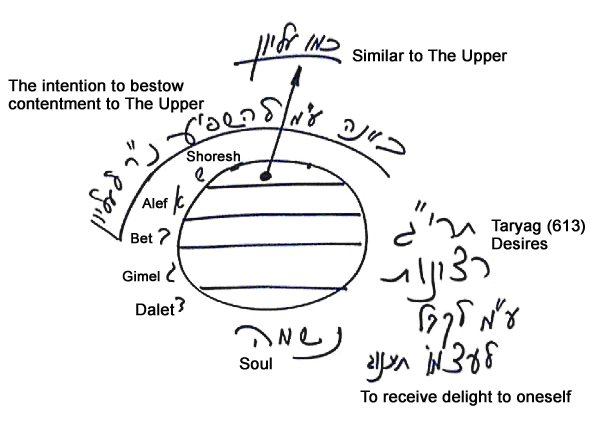 כמו עליון
Similar to The Upper
The intention to bestow
contentment to The Upper
כוונה ע"מ להשפיע נ"ר לעליון
Shoresh
ש
Alef א
Bet ב
Gimel ג
Dalet ד
תרי"ג
רצונות
ע"מ לקבל
לעצמו תענוג
Taryag (613)
Desires
נשמה
Soul
To receive delight to oneself